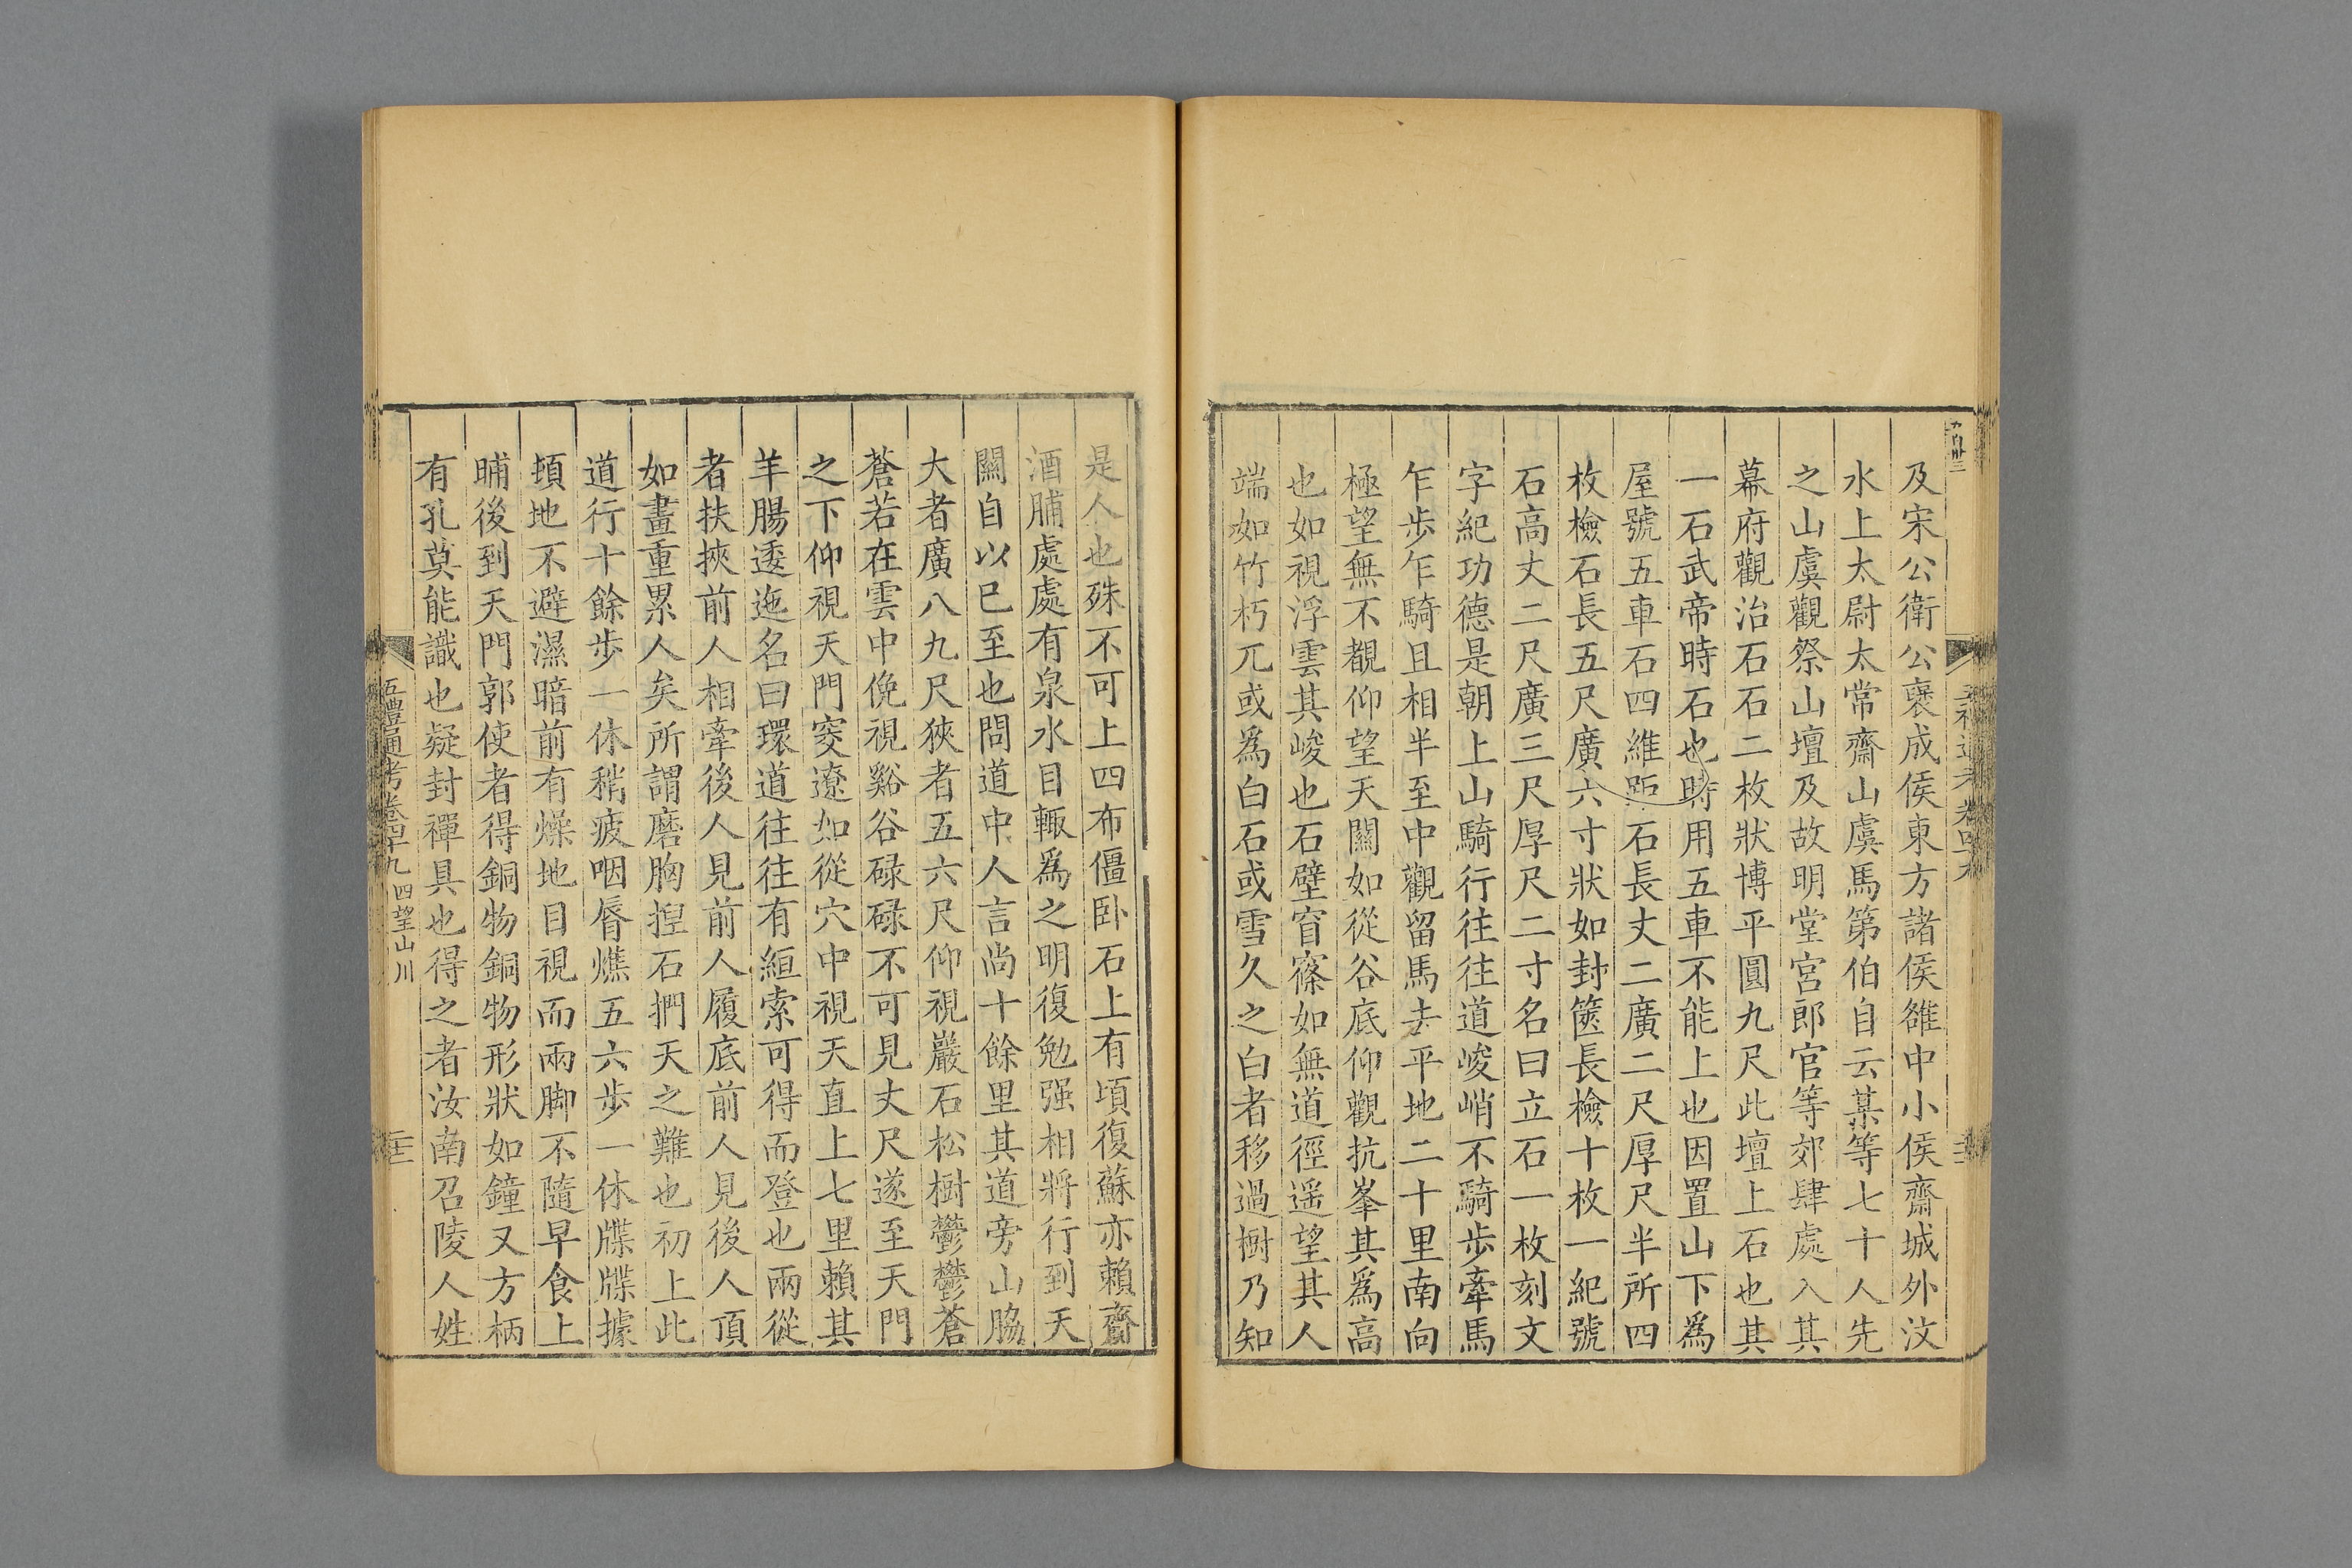 及宋公衛公襃成侯東方諸侯雒中小侯齋城外汶
水上太尉太常齋山虞馬第伯自云某等七十人先
之山虞觀祭山壇及故明堂宮郎官等郊肆處入其
幕府觀治石石二枚狀博平圓九尺此壇上石也其
一石武帝時石也時用五車不能上也因置山下為
屋號五車石四維距石長丈二廣二尺厚尺半所四
枚檢石長五尺廣六寸狀如封篋長檢十枚一紀號
石高丈二尺廣三尺厚尺二寸名曰立石一枚刻文
字紀功德是朝上山騎行往往道峻峭不騎步牽馬
乍步乍騎且相半至中觀留馬去平地二十里南向
極望無不覩仰望天關如從谷底仰觀抗峯其為高
也如視浮雲其峻也石壁窅窱如無道徑遥望其人
端如竹朽兀或為白石或雪久之白者移過樹乃知
是人也殊不可上四布僵卧石上有頃復蘇亦賴齋
酒脯處處有泉水目輒為之明復勉强相將行到天
關自以已至也問道中人言尚十餘里其道旁山脇
大者廣八九尺狹者五六尺仰視巖石松樹鬱鬱蒼
蒼若在雲中俛視谿谷碌碌不可見丈尺遂至天門
之下仰視天門窔遼如從穴中視天直上七里賴其
羊腸逶迤名曰環道往往有絙索可得而登也兩從
者扶挾前人相牽後人見前人履底前人見後人頂
如畫重累人矣所謂磨胸揑石捫天之難也初上此
道行十餘步一休稍疲咽脣燋五六步一休牒牒據
頓地不避濕暗前有燥地目視而兩脚不隨早食上
晡後到天門郭使者得銅物銅物形狀如鐘又方柄
有孔莫能識也疑封禪具也得之者汝南召陵人姓
五禮通考卷四十九 四望山川